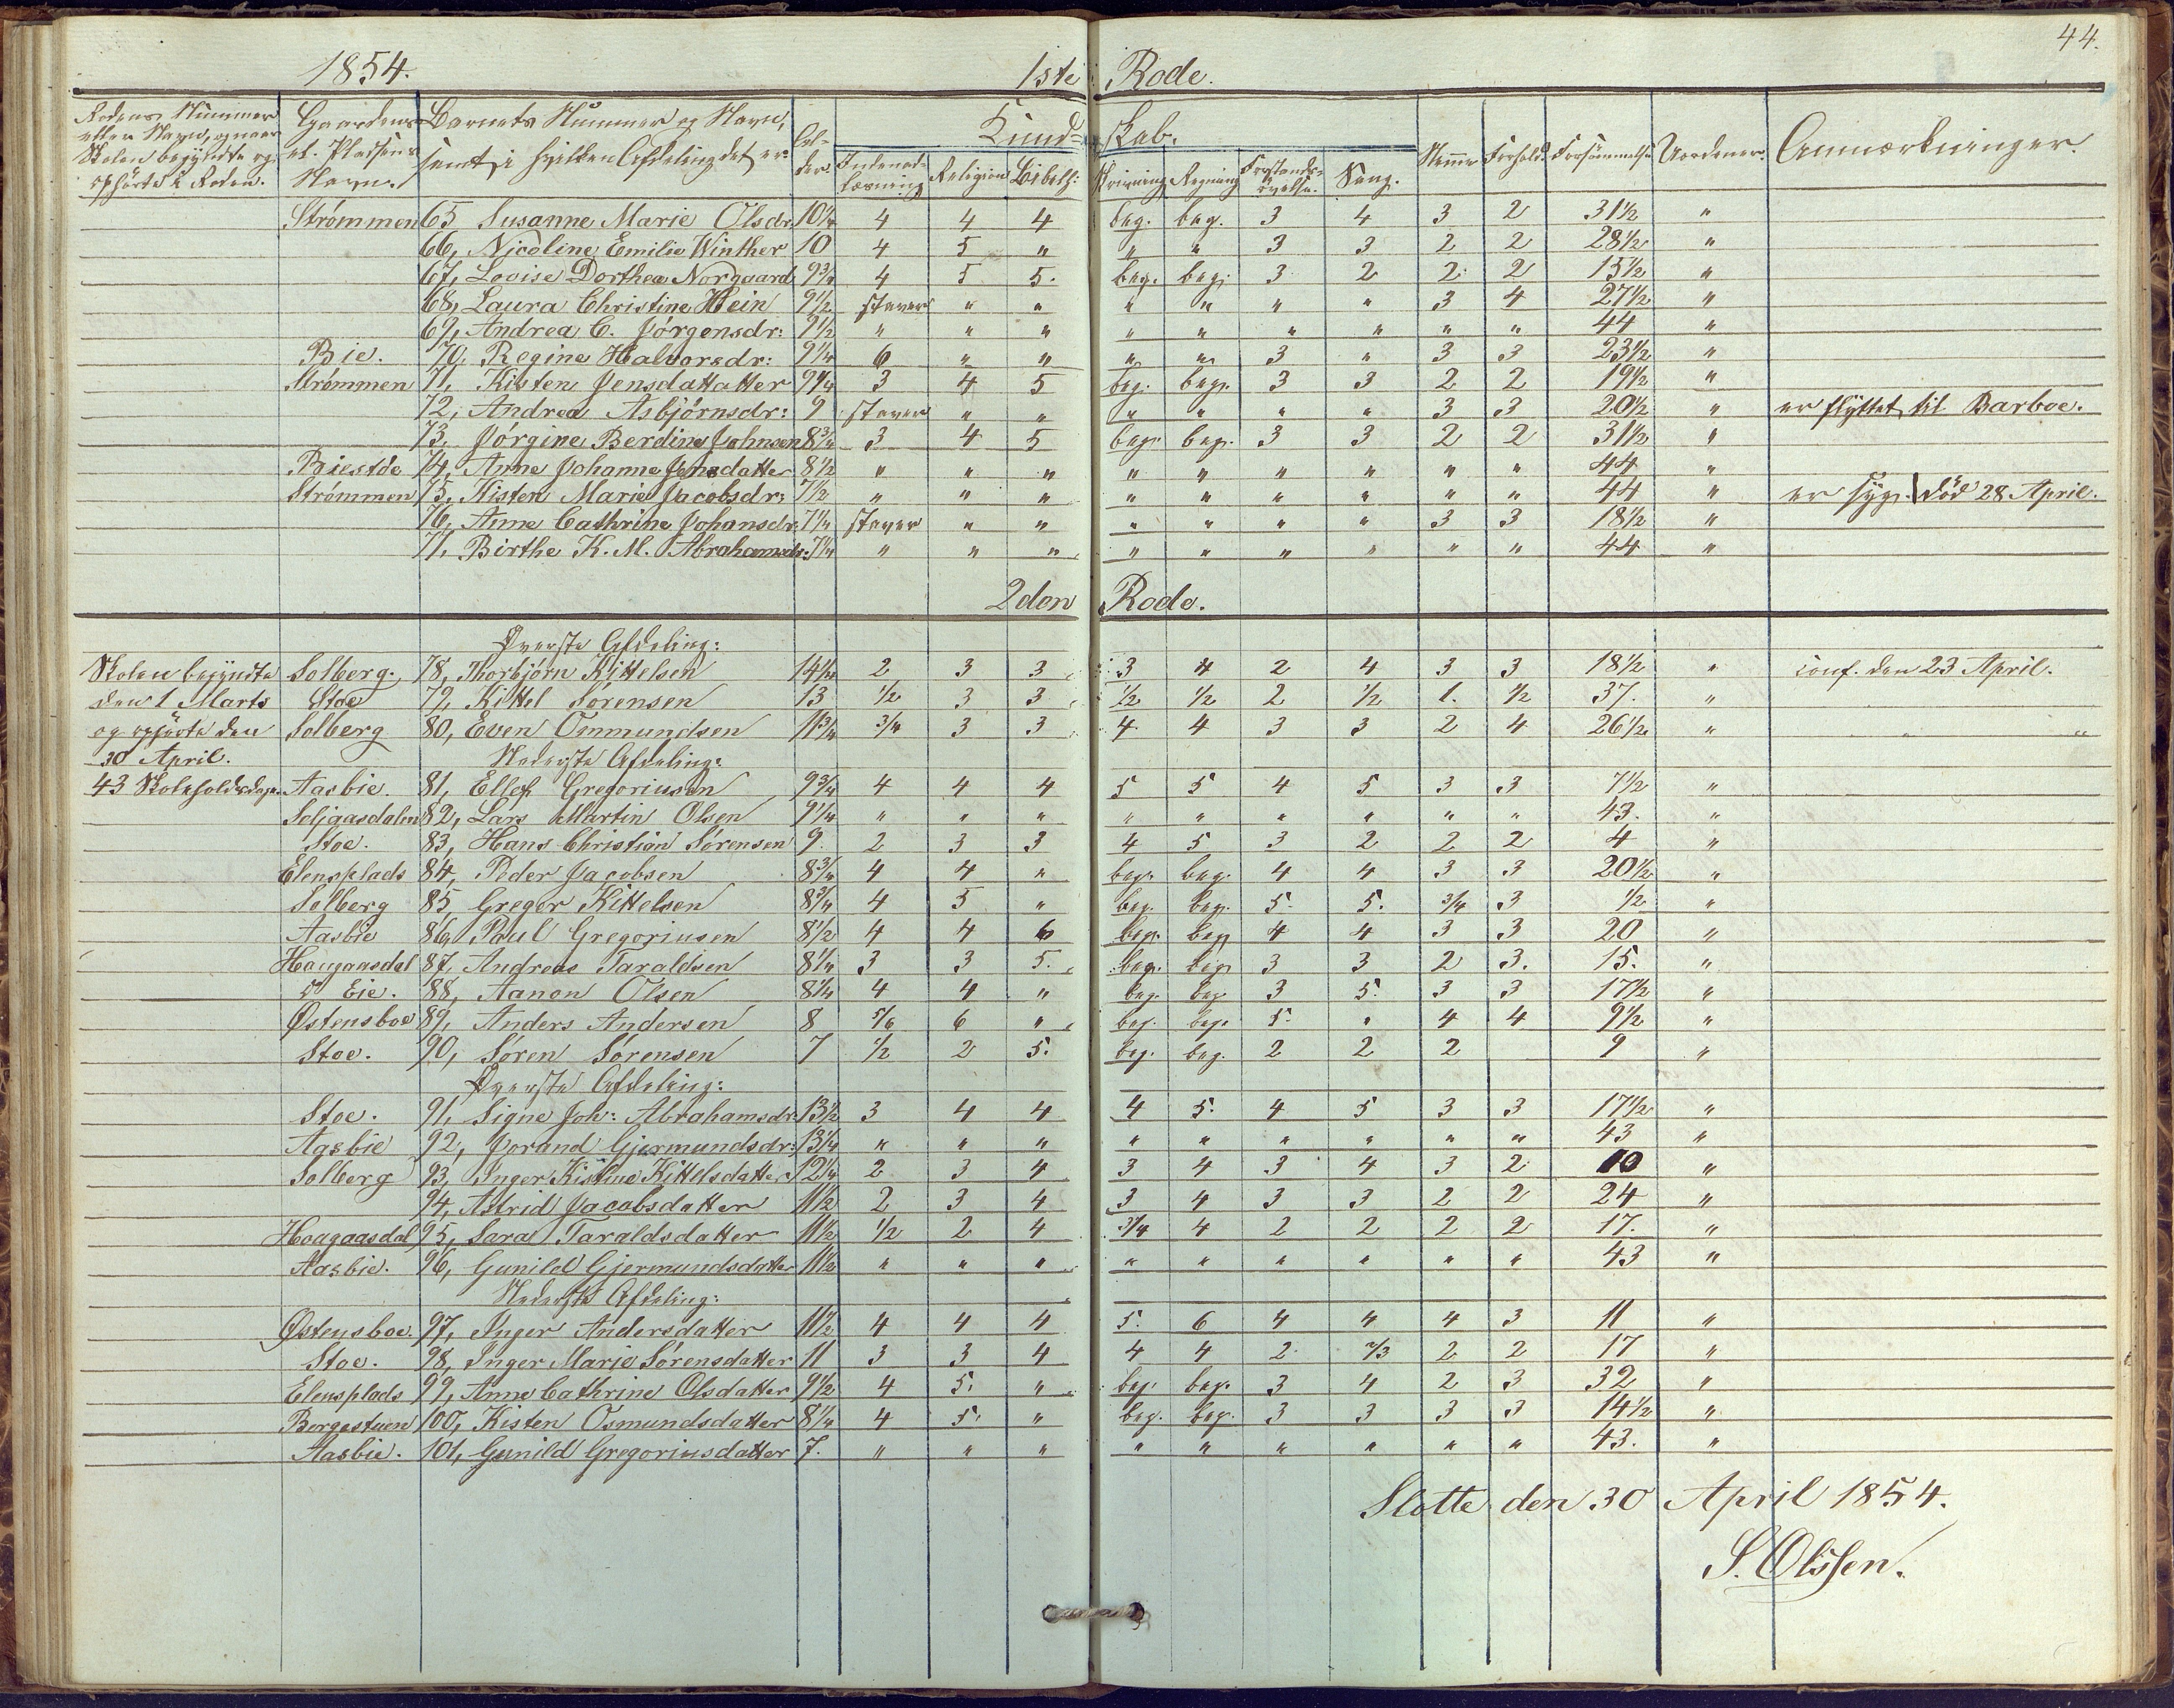 44.
1854. 1ste Rode.
Rodens Nummer eller Navn, og naar Skolen begyndte og ophørte i Roden. | Gaardens el. Pladsens Navn. | Barnets Nummer og Navn, samt i hvilken Afdeling det er. | Al-der. | Kund-skab. | Nemme | Forhold. | Forsømmelse | Uordener. | Anmærkninger.
Indenad-læsning | Religion | Bibelh: | Skrivning | Regning | Forstands-øvelse. | Sang.
Strømmen 65 Susanne Marie Olsdr. 10¼ 4 4 4 beg. beg. 3 4 3 2 31½ "
66, Nicoline Emilie Winther 10 4 5 " " " 3 3 2 2 28½ "
67, Lovise Dorthea Norgaard 9¾ 4 5 5. beg. beg. 3 2 2 2 15½ "
68, Laura Christine Hein 9½ staver " " " " " " 3 4 27½ "
69, Andrea C. Jörgensdr: 9½ " " " " " " " " " 44 "
Bie. 70, Regine Halvorsdr: 9¼ 6 " " " " 3 " 3 3 23½ "
Strømmen 71, Kisten Jensdattatter 9¼ 3 4 5 beg. beg. 3 3 2 2 19½ "
72, Andrea Asbjörnsdr: 9 staver " " " " " " 3 3 20½ " er flyttet til Barboe.
73, Jörgine Berdine Johnsen 8¾ 3 4 5 beg. beg. 3 3 2 2 31½ "
Biestöe 74, Anne Johanne Jensdatter 8½ " " " " " " " " " 44 "
Strømmen 75, Kisten Marie Jacobsdr: 7½ " " " " " " " " " 44 " er syg. død 28 April.
76, Anne Cathrine Johansdr. 7¼ staver " " " " " " 3 3 18½ "
77, Birthe K. M. Abrahamsdr: 7¼ " " " " " " " " " 44 "
2den Rode.
Øverste Afdeling:
Skolen begyndte Solberg. 78, Thorbjörn Kittelsen 14¼ 2 3 3 3 4 2 4 3 3 18½ " conf. den 23 April.
den 1 Marts Stoe 79, Kittel Sörensen 13 ½ 3 3 ½ ½ 2 ½ 1. ½ 37. "
og ophörte den Solberg 80, Even Ommundsen 11¾ ¾ 3 3 4 4 3 3 2 4 26½ "
30 April. Nederste Afdeling:
43 Skoleholdsdage. Aasbie. 81, Ellef Gregoriusen 9¾ 4 4 4 5 5 4 5 3 3 7½ "
Seljaasdalen 82, Lars Martin Olsen 9¼ " " " " " " " " " 43. "
Stoe. 83, Hans Christian Sörensen 9. 2 3 3 4 5 3 2 2 2 4 "
Elensplads 84, Peder Jacobsen 8¾ 4 4 " beg. beg. 4 4 3 3 20½ "
Solberg 85 Greger Kittelsen 8¾ 4 5 " beg. beg. 5. 5. ¾ 3 ½ "
Aasbie 86, Paul Gregoriusen 8½ 4 4 6 beg. beg 4 4 3 3 20 "
Haugaasdal 87, Andreas Taraldsen 8¼ 3 3 5. beg. beg 3 3 2 3. 15. "
Eie. 88, Aanon Olsen 8¼ 4 4 " beg. beg. 3 5. 3 3 17½ "
Østensboe 89, Anders Andersen 8 5/6 6 " beg. beg. 5. " 4 4 9½ "
Stoe. 90, Sören Sörensen 7 ½ 2 5. beg. beg. 2 2 2 9 "
Øverste Afdeling:
Stoe. 91, Signe Joh: Abrahamsdr. 13½ 3 4 4 4 5. 4 5 3 3 17½ "
Aasbie 92, Jorand Gjermundsdr: 13¼ " " " " " " " " " 43 "
Solberg 93, Inger Kistine Kittelsdatter 12¼ 2 3 4 3 4 3 4 3 2 10 "
94, Astrid Jacobsdatter 11½ 2 3 4 3 4 3 3 2 2 24 "
Hoagaasdal 95, Sara Taraldsdatter 11½ ½ 2 4 ¾ 4 2 2 2 2 17. "
Aasbie. 96, Gunild Gjermundsdatter 11½ " " " " " " " " " 43 "
Nederste Afdeling:
Østensboe. 97, Inger Andersdatter 11½ 4 4 4 5. 6 4 4 4 3 11 "
Stoe. 98, Inger Marie Sörensdatter 11 3 3 4 4 4 2 2/3 2 2 17 "
Elensplads 99, Anne Cathrine Olsdatter 9½ 4 5. " beg. beg. 3 4 2 3 32 "
Borgestuen 100, Kisten Osmundsdatter 8¼ 4 5. " beg. beg. 3 3 3 3 14½ "
Aasbie. 101, Gunild Gregoriusdatter 7. " " " " " " " " " 43. "
Slotte den 30 April 1854.
S. Olssen.